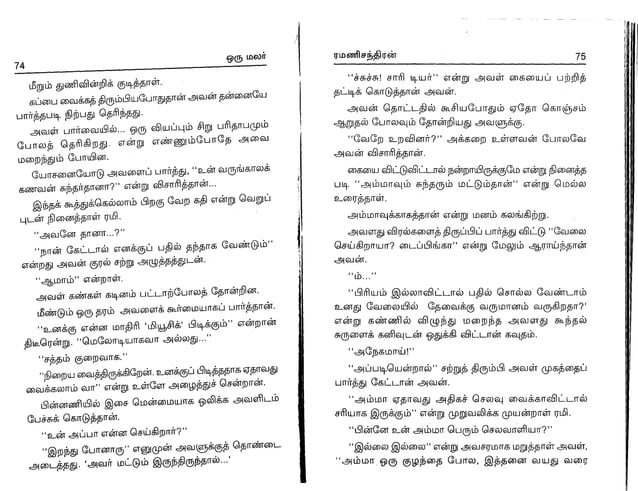 74
ஒரு மலர்
மீறும் துணிவின்றிக் குடித்தாள்.
கப்பை வைக்கத் திரும்பியபோதுதான் அவன் தன்னையே
பார்த்தபடி நிற்பது தெரிந்தது.
அவள் பார்வையில்... ஒரு வியப்பும் சிறு பரிதாபமும்
போலத் தெரிகிறது. என்று எண்ணும்போதே அவை
மறைந்து போயின.
யோசனையோடு அவளைப் பார்த்து, "உன் வருங்காலக்
கணவன் சுந்தர்தானா?" என்று விசாரித்தான்...
இந்தக் கூத்துக்கெல்லாம் பிறகு வேற கதி என்று வெறுப்
புடன் நினைத்தாள் ரமி.
"அவனே தானா...?"
"நான் கேட்டால் எனக்குப் பதில் தந்தாக வேண்டும்"
என்றது அவன் குரல் சற்று அழுத்தத்துடன்.
"ஆமாம்" என்றாள்.
அவள் கண்கள் கடினம் பட்டாற்போலத் தோன்றின.
மீண்டும் ஒரு தரம் அவளைக் கூர்மையாகப் பார்த்தான்.
"உனக்கு என்ன மாதிரி 'மியூசிக்' பிடிக்கும்" என்றான்
திடீரென்று. "மெலோடியாகவா அல்லது..."
"சத்தம் குறைவாக."
"நிறைய வைத்திருக்கிறேன். உனக்குப் பிடித்ததாக ஏதாவது
வைக்கலாம் வா" என்று உள்ளே அழைத்துச் சென்றான்.
பின்னணியில் இசை மென்மையாக ஒலிக்க அவளிடம்
பேச்சுக் கொடுத்தான்.
"உன் அப்பா என்ன செய்கிறார்?"
"இறந்து போனாரு" எனுமுன் அவளுக்குத் தொண்டை
அடைத்தது. 'அவர் மட்டும் இருந்திருந்தால்...'
ரமணிசந்திரன்
75
"ச்சுச்சு! சாரி டியர்" என்று அவள் கையைப் பற்றித்
தட்டிக் கொடுத்தான் அவன்.
அவன் தொட்டதில் கூசியபோதும் ஏதோ கொஞ்சம்
ஆறுதல் போலவும் தோன்றியது அவளுக்கு.
"வேறே உறவினர்?" அக்கறை உள்ளவன் போலவே
அவன் விசாரித்தான்.
கையை விட்டுவிட்டால் நன்றாயிருக்குமே என்று நினைத்த
படி "அம்மாவும் சுந்தரும் மட்டும்தான்" என்று மெல்ல
உரைத்தாள்.
அம்மாவுக்காகத்தான் என்று மனம் கலங்கிற்று.
அவளது விரல்களைத் திருப்பிப் பார்த்து விட்டு "வேலை
செய்கிறாயா? டைப்பிங்கா" என்று மேலும் ஆராய்ந்தான்
அவன்.
"ம்..."
"பிரியம் இல்லாவிட்டால் பதில் சொல்ல வேண்டாம்
உனது வேலையில் தேவைக்கு வருமானம் வருகிறதா?'
என்று கண்ணில் விழுந்து மறைந்த அவளது கூந்தல்
சுருளைக் கனிவுடன் ஒதுக்கி விட்டான் கவுதம்.
"அநேகமாய்!"
"அப்படியென்றால்" சற்றுத் திரும்பி அவள் முகத்தைப்
பார்த்து கேட்டான் அவன்.
"அம்மா ஏதாவது அதிகச் செலவு வைக்காவிட்டால்
சரியாக இருக்கும்" என்று முறுவலிக்க முயன்றாள் ரமி.
"பின்னே உன் அம்மா பெரும் செலவாளியா?"
"இல்லை இல்லை" என்று அவசரமாக மறுத்தாள் அவள்,
"அம்மா ஒரு குழந்தை போல, இத்தனை வயது வரை